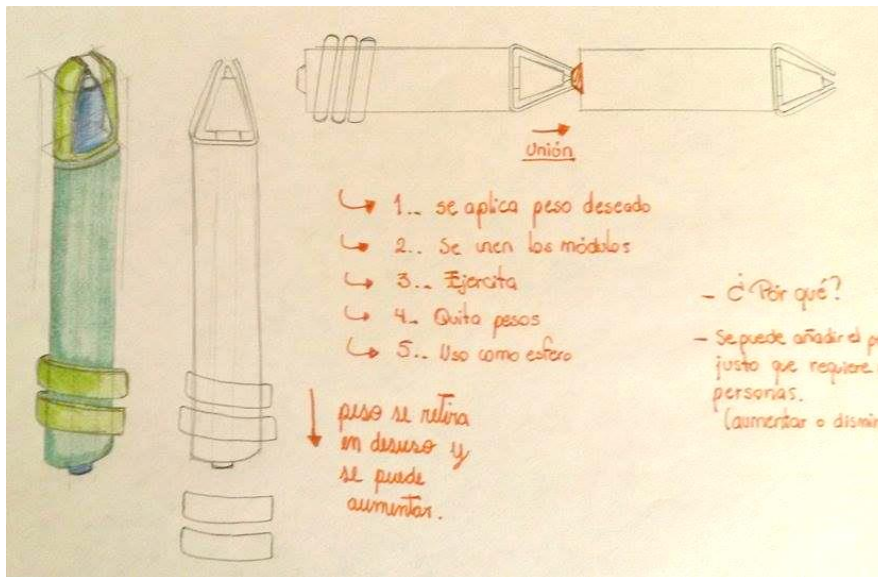 Unión
1.. se aplica peso deseado
2.. Se unen los módulos
3.. Ejercita
4.. Quita pesos
5.. Uso como esfero
peso se retira
en desuso y
se puede
aumentar.
- ¿Por qué?
- Se puede añadir el
justo que requiere
personas.
(aumentar o